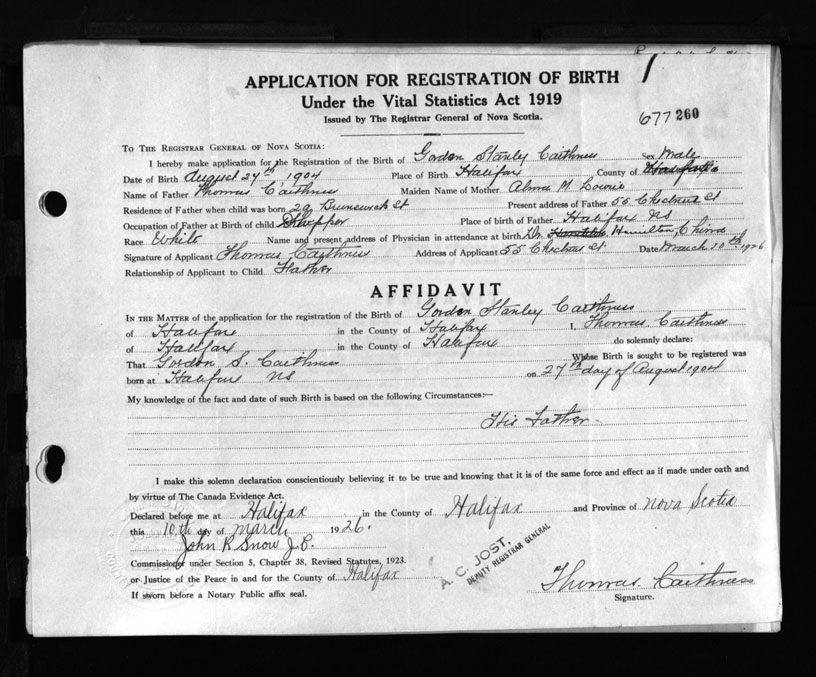 APPLICATION FOR REGISTRATION OF BIRTH
Under the Vital Statistics Act 1919
Issued by The Registrar General of Nova Scotia.
677260
TO THE REGISTRAR GENERAL OF NOVA SCOTIA:
I hereby make application for the Registration of the Birth of Gordon Stanly Caithness Sex Male
Date of Birth August 27th 1904 Place of Birth Halifax County of
Name of Father Thomas Caithness Maiden Name of Mother Alma M. Lowrie
Residence of Father when child was born 29 Brunswick St Present address of Father 55 Chestnut St
Occupation of Father at Birth of child Shipper Place of birth of Father Halifax NS
Race White Name and present address of Physician in attendance at birth Dr. Hamilton, China
Signature of Applicant Thomas Caithness Address of Applicant 55 Chestnut St. Date March 10th 1926
Relationship of Applicant to Child Father
AFFIDAVIT
IN THE MATTER of the application for the registration of the Birth of Gordon Stanley Caithness
of Halifax in the County of Halifax I, Thomas Caithness
of Halifax in the County of Halifax do solemnly declare:
That Gordon S. Caithness Whose Birth is sought to be registered was
born at Halifax NS on 27th day of August 1904
My knowledge of the fact and date of such Birth is based on the following Circumstances:—
His Father
I make this solemn declaration conscientiously believing it to be true and knowing that it is of the same force and effect as if made under oath and
by virtue of The Canada Evidence Act.
Declared before me at Halifax in the County of Halifax and Province of Nova Scotia
this 10th day of March 1926.
John R Snow J.P.
Commissioner under Section 5, Chapter 38, Revised Statutes, 1923.
or Justice of the Peace in and for the County of Halifax
If sworn before a Notary Public affix seal.
A. C. JOST,
DEPUTY REGISTRAR GENERAL
Thomas Caithness
Signature.